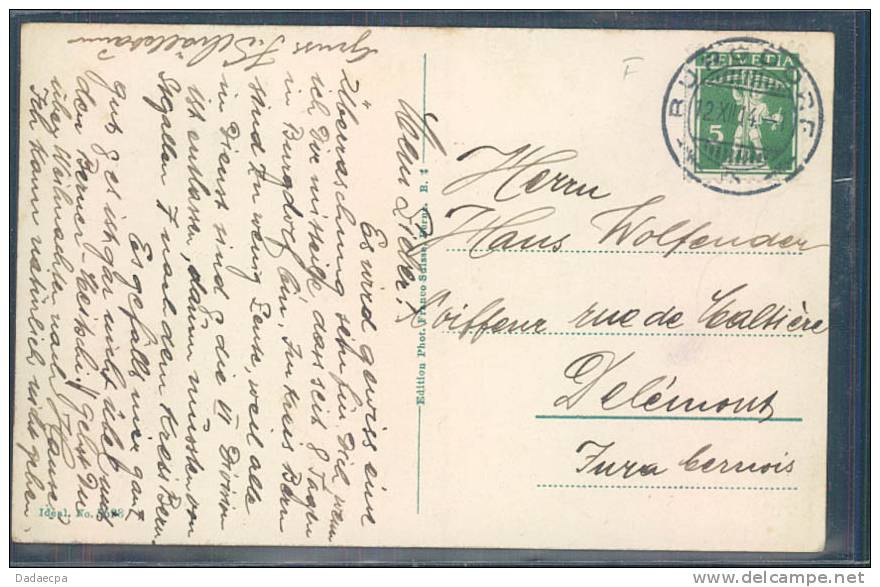 Mein Lieber!
Es wird gewiss eine
Überraschung sein für Dich wenn
ich Dir mitteile dass seit 8 Tagen
in Burgdorf bin. Im Kreis Bern
sind zu wenig Leute, weil alle
in Dienst sind & die VI Division
ist entlassen, darum mussten von
St.gallen 7 nach dem Kreis Bern.
Es gefällt mir ganz
gut & es ist gar nicht übel mit
den Berner-Meitschi! gehst Du
über Weihnachten nach Hause?
Ich kann natürlich nicht gehen.
Gruss
Edition Phot. Franco-Suisse, Berne. B. 1
Ideal. No.
HELVETIA
5
BURGDORF
12 XII 14
F
Herrn
Hans Wolfender
Coiffeur rue de
Delémont
Jura bernois
Dadaecpa
www.delcampe.net